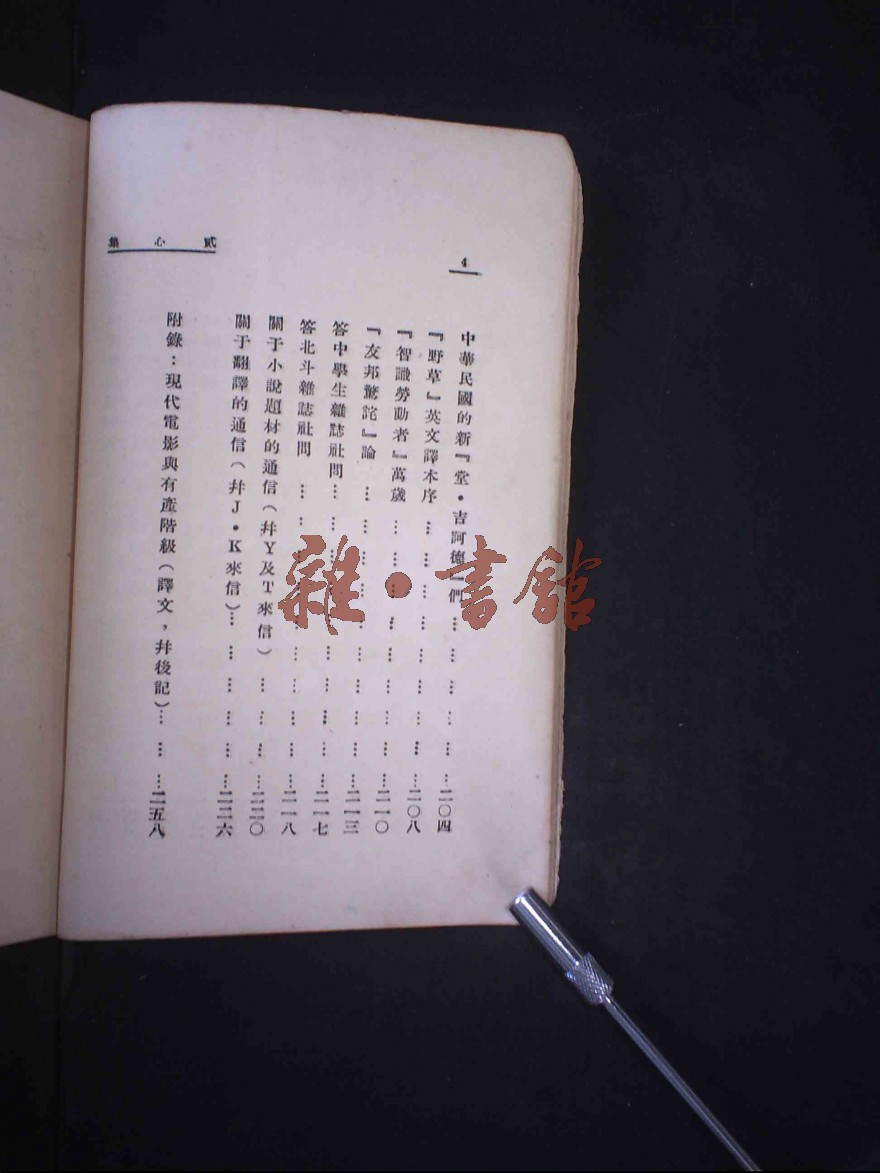 貳心集
4
中華民國的新『堂・吉訶德』們 … … … … … …二〇四
『野草』英文譯本序 … … … … … … … … …二〇八
『智識勞動者』萬歲 … … … … … … … … …二一〇
『友邦驚詫』論 … … … … … … … … … …二一三
答中學生雜誌社問… … … … … … … … … …二一七
答北斗雜誌社問 … … … … … … … … … …二一八
關于小說題材的通信（幷Y及T來信） … … … …二二〇
關于翻譯的通信（幷J・K來信）… … … … … …二二六
附錄：現代電影與有產階級（譯文，幷後記）… … …二五八
雜・書館